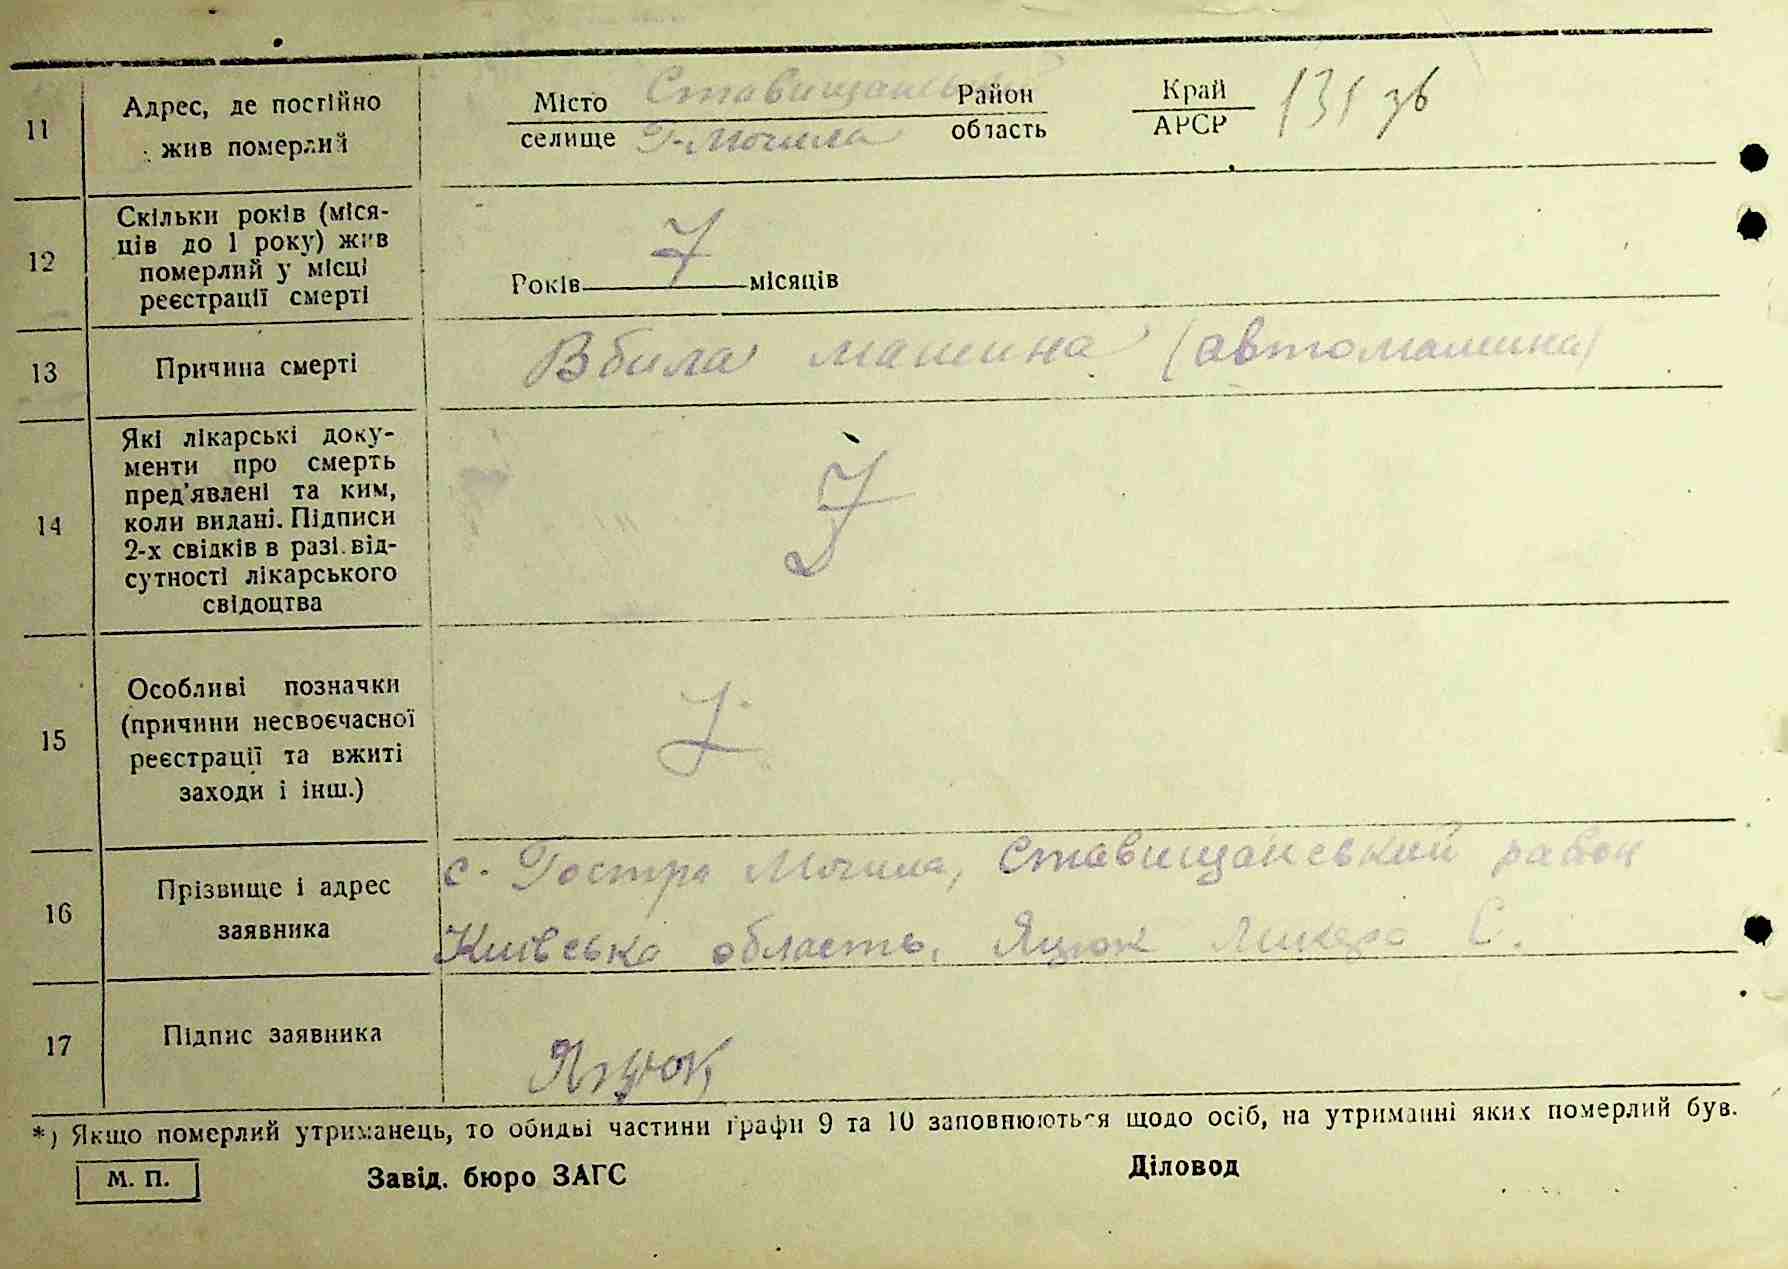 11
Адрес, де постійно
жив померлий
Місто Ставищанськ Район Край 131 зв
селище Г-Могила область АРСР
12
Скільки років (міся-
ців до 1 року) жив
померлий у місці
реєстрації смерті
Років 7 місяців
13
Причина смерті
Вбила машина (автомашина)
14
Які лікарські доку-
менти про смерть
пред'явлені та ким,
коли видані. Підписи
2-х свідків в разі від-
сутності лікарського
свідоцтва
15
Особливі позначки
(причини несвоєчасної
реєстрації та вжиті
заходи і інш.)
16
Прізвище і адрес
заявника
с. Гостра Могила, Ставищанський район
Київська область, Яцюк Ликера С.
17
Підпис заявника
Яцюк
*) Якщо померлий утриманець, то обидві частини графи 9 та 10 заповнюються щодо осіб, на утриманні яких померлий був.
М. П.
Завід. бюро ЗАГС
Діловод